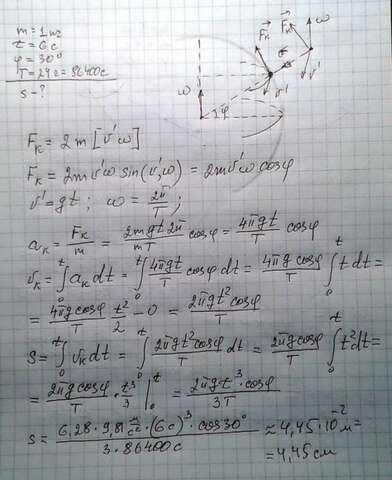 m = 1 кг
t = 6 c
φ = 30°
T = 24 г = 86400 c
s - ?
F⃗к F⃗к ω
σ
v⃗' v⃗'
ω φ
Fк = 2m [v⃗'ω⃗]
Fк = 2mv'ω sin(v⃗',ω⃗) = 2mv'ω cosφ
v' = gt ; ω = 2π/T ;
aк = Fк/m = 2mgt 2π/mT cosφ = 4πgt/T cosφ
vк = ∫₀ᵗ aк dt = ∫₀ᵗ 4πgt/T cosφ dt = 4πg cosφ/T ∫₀ᵗ t dt =
= 4πg cosφ/T t²/2 - 0 = 2πgt² cosφ/T
S = ∫₀ᵗ vк dt = ∫₀ᵗ 2πgt² cosφ/T dt = 2πg cosφ/T ∫₀ᵗ t² dt =
= 2πg cosφ/T · t³/3 |₀ᵗ = 2πgt³ · cosφ/3T
s = 6,28 · 9,81 м/c² · (6c)³ · cos30°/3 · 86400 c ≈ 4,45 · 10⁻² м =
= 4,45 см